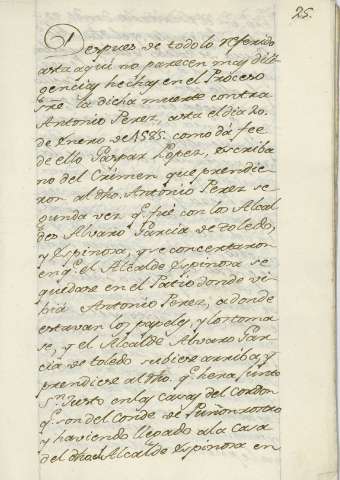 25.
Despues de todo lo referido
asta aqui no parecen mas dili
gencias hechas en el Proceso
sre. la dicha muerte contra
Antonio Perez, asta el dia 20.
de Enero de 1585. como dá fee
de ello Gaspar Lopez, escriba
no del Crimen, que prendie
ron al dho. Antonio Perez se
gunda vez q.e fué con los Alcal
des Alvaro Garcia de toledo,
y Espinosa, y se concertaron
en q.e el Alcalde Espinosa se
quedase en el Patio donde vi
bia Antonio Perez, adonde
estavan los papeles, y los toma
se, y el Alcalde Alvaro Gar
cia de toledo subiese arriba, y
prendiese al dho. q.e hera junto
S.n Justo en las casas del Cordon
q.e son del Conde de Puñonrostro
y haviendo llegado a la Casa
del dho. Alcalde Espinosa en